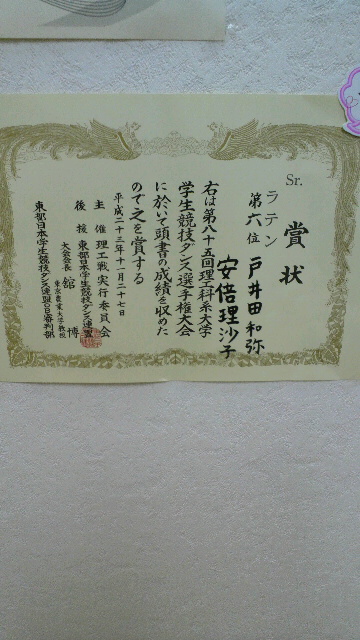 Sr.
賞状
ラテン
第六位 戸井田和弥
安倍理沙子
右は第八十五回理工科系大学
学生競技ダンス選手権大会
に於いて頭書の成績を収めた
ので之を賞する
平成二十三年十一月二十七日
主催 理工戦実行委員会
後援 東部日本学生競技ダンス連盟
大会会長 東京農業大学教授 舘博
東部日本学生競技ダンス連盟OB審判部